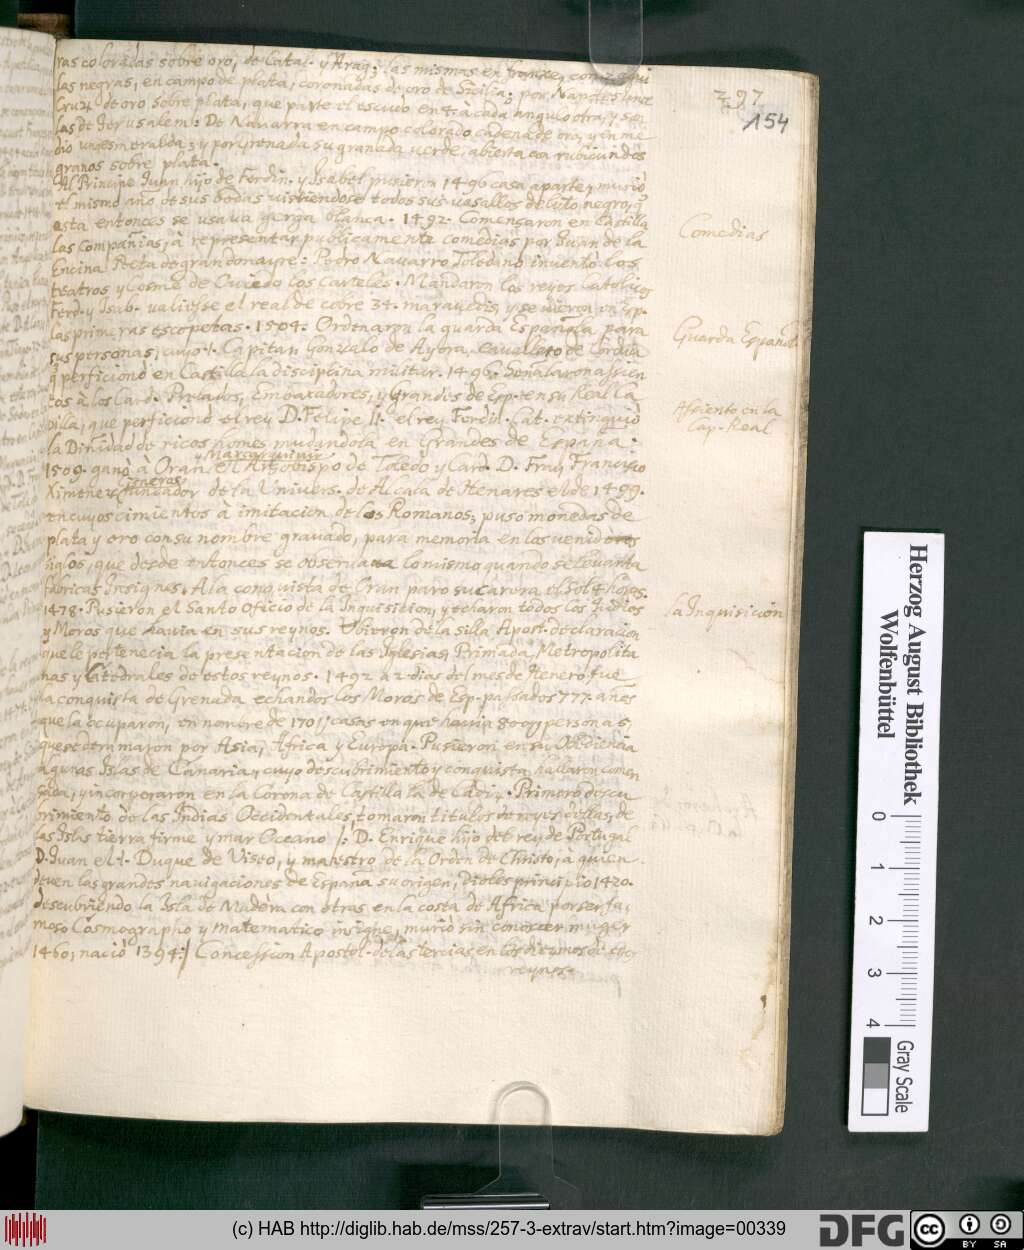 297
154
ras coloradas sobre oro, de Catal. y Arag;. las mismas en
las negras, en campo de plata, coronadas de oro de Sicilia; por Napoles una
Cruz de oro sobre plata, que parte el escudo en 4. à cada angulo otra, y son
las de Jerusalem: De Navarra en campo colorado cadena de oro, y en me
dio una esmeralda; y por Grenada su granada verde, abierta con rubicundos
granos sobre plata.
Al Principe Juan hijo de Ferdin. y Isabel pusieron 1496 casa aparte, y muriò
el mismo año de sus bodas vistiendose todos sus vasallos de luto negro, q̃
asta entonces se usava gerga blanca. 1492. Començaron en Castilla
las compañias, à representar publicamente comedias por Juan de la
Encina Poeta de gran donayre: Pedro Navarro Toledano inventò los
teatros y Cosme de Oviedo los carteles. Mandaron los reyes Catolicos
Ferd. y Isab. valiesse el real de cobre 34. maravedis, y se vieron en Esp.
las primeras escopetas. 1504. Ordenaron la guarda Española para
sus personas, cuyo 1. Capitan Gonzalo de Ayora, cavallero de Cordua
q̃ perficionò en Castilla la disciplina militar. 1496. Señalaron assien
tos à los Card. Prelados, Embaxadores, y Grandes de Esp. en su Real Ca
pilla, que perficionò el rey D. Felipe II. el rey Ferdin. Cat. extinguiò
la Dinidad de ricos homes mudandola en Grandes de España.
y Marçarquivir
1509. ganò à Oran el Arzobispo de Toledo y Card. D. Fray Francisco
Ximenez Cisneros fundador de la Univers. de Alcala de Henares el de 1499.
en cuyos cimientos à imitacion de los Romanos, puso monedas de
plata y oro con su nombre gravado, para memoria en los venideros
siglos, que desde entonces se observa lo mismo quando se levanta
fabricas insignes, A la conquista de Oran paro su carera el Sol 4 horas.
1478. Pusieron el Santo Oficio de la Inquisicion, y echaron todos los Judios
y Moros que havia en sus reynos. Obieron de la silla Apost. declaracion
que le pertenecia la presentacion de las Iglesias Primada, Metropolita
nas y Catedrales de estos reynos. 1492 a 2 dias del mes de Henero fue
la conquista de Grenada echandos los Moros de Esp. passados 777. años
que la ocuparon, en nombre de 170 casas en que havia 800 personas,
que se deramaron por Asia, Africa y Europa. Pusieron en su Obediencia
algunas Islas de Canaria, cuyo descubrimiento y conquista hallaron comen
çada, y incorporaron en la Corona de Castilla la de Cadiz. Primero descu
brimiento de las Indias Occidentales, tomaron titulos de reyes dellas, de
las Islas tierra firme y mar Oceano /: D. Enrique hijo del rey de Portugal
D. Juan el 1. Duque de Viseo, y maestro de la Orden de Christo, à quien
deven las grandes navigaciones de España su origen, dioles principio 1420.
descubriendo la Isla de Madera con otras en la costa de Africa por ser fa,
moso Cosmographo y matematico insigne, muriò sin conocer muger
1460, naciò 1394:/ Concession Apostol. de las tercias en los diezmos de estos
reynos.
Comedias
Guarda Española
Assiento en la
Cap. Real
la Inquisicion
Herzog August Bibliothek
Wolfenbüttel
0 1 2 3 4
Gray Scale
(c) HAB http://diglib.hab.de/mss/257-3-extrav/start.htm?image=00339
DFG
cc BY SA